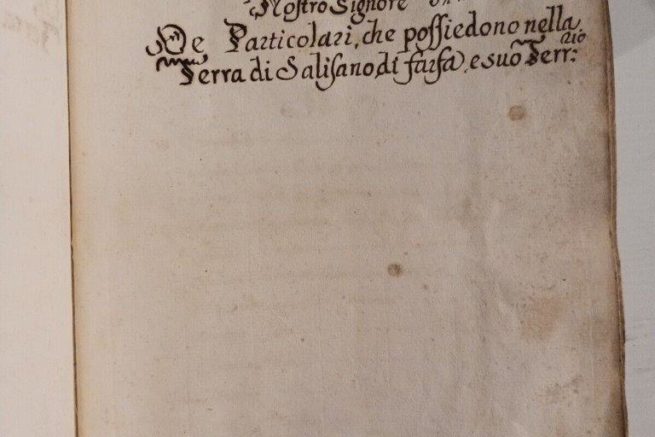 Nostro Signore
De Particolari, che possiedono nella
Terra di Salisano, di farsa, e suo Terr:rio